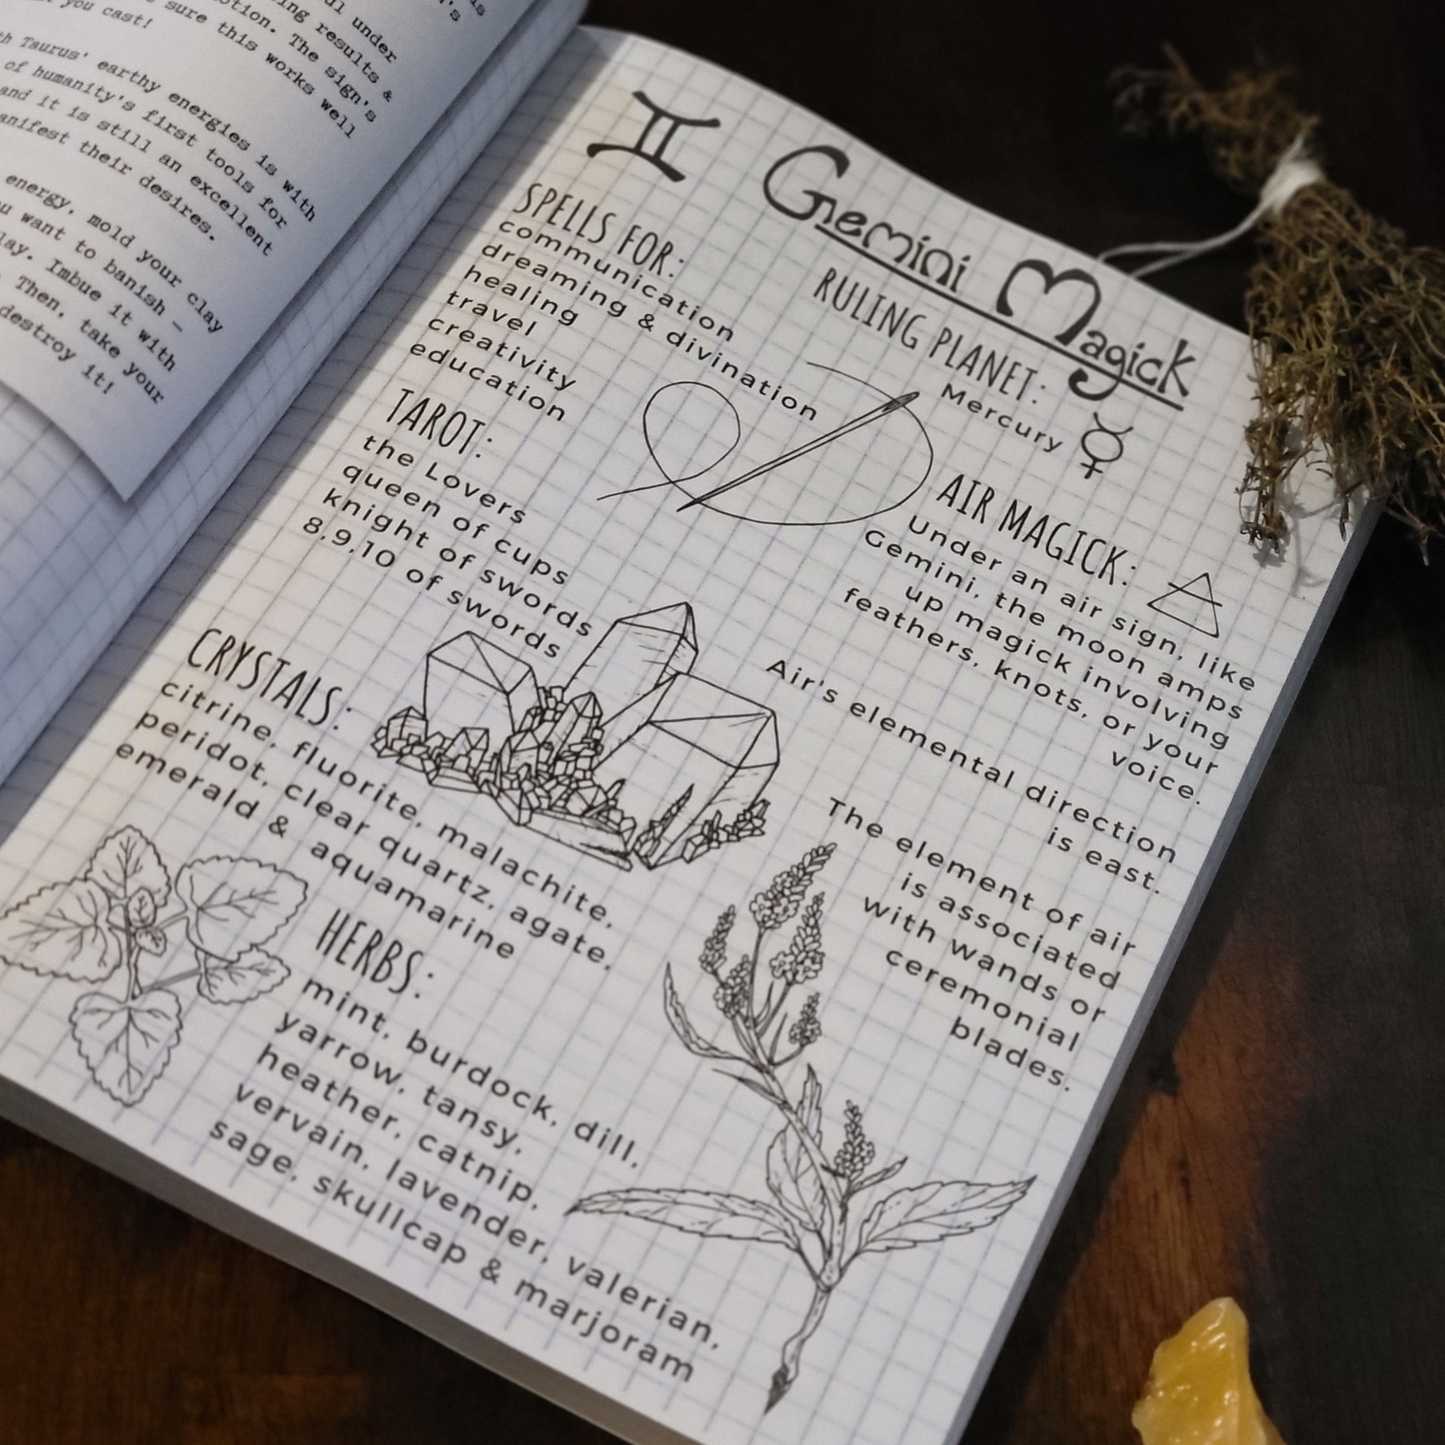 ul under
ing results &
otion. The sign's
e sure this works well
t you cast!
th Taurus' earthy energies is with
of humanity's first tools for
and it is still an excellent
anifest their desires.
energy, mold your clay
u want to banish –
lay. Imbue it with
. Then, take your
destroy it!
♊ Gemini Magick
SPELLS FOR:
communication
dreaming & divination
healing
travel
creativity
education
TAROT:
the Lovers
queen of cups
knight of swords
8,9,10 of swords
CRYSTALS:
citrine, fluorite, malachite,
peridot, clear quartz, agate,
emerald & aquamarine
HERBS:
mint, burdock, dill,
yarrow, tansy,
heather, catnip,
vervain, lavender, valerian,
sage, skullcap & marjoram
RULING PLANET:
Mercury ☿
AIR MAGICK:
Under an air sign, like
Gemini, the moon amps
up magick involving
feathers, knots, or your
voice.
Air's elemental direction
is east.
The element of air
is associated
with wands or
ceremonial
blades.